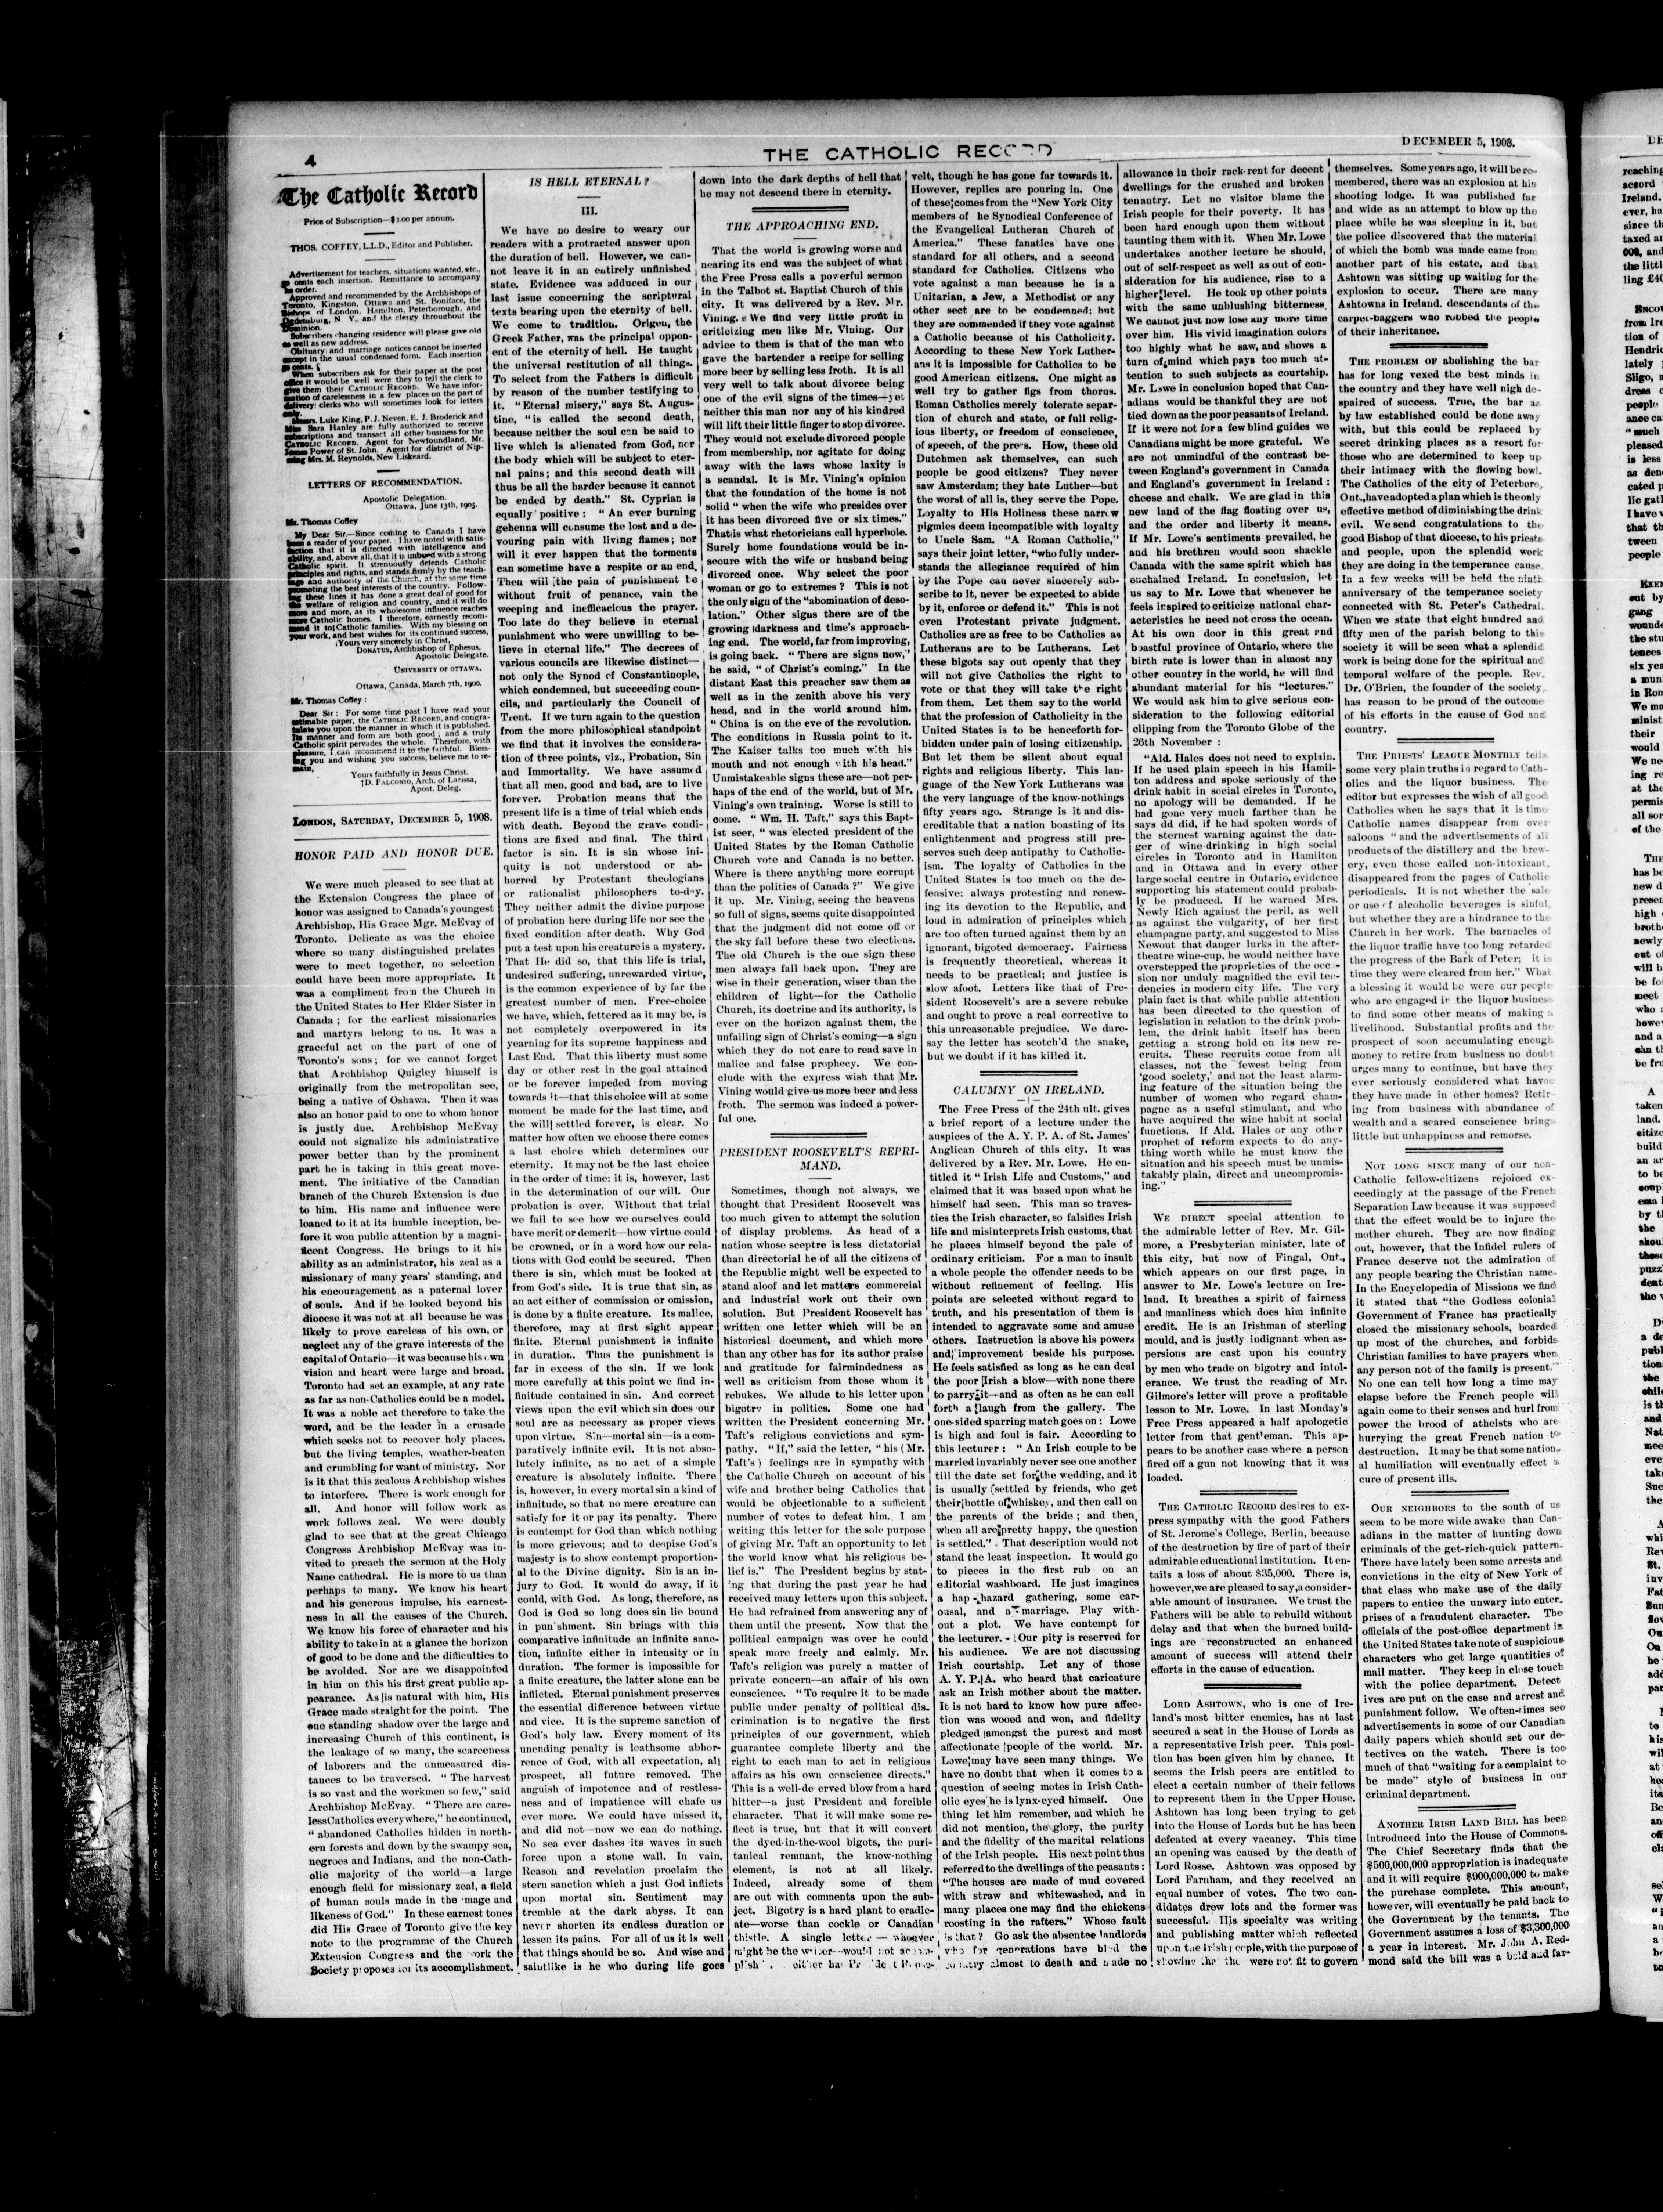 4
THE CATHOLIC RECORD
DECEMBER 5, 1908.
The Catholic Record
Price of Subscription—$2.00 per annum.
THOS. COFFEY, LL.D., Editor and Publisher.
Advertisement for teachers, situations wanted, etc.,
50 cents each insertion. Remittance to accompany
the order.
Approved and recommended by the Archbishops of
Toronto, Kingston, Ottawa and St. Boniface, the
Bishops of London, Hamilton, Peterborough, and
Ogdensburg, N. Y., and the clergy throughout the
Dominion.
Subscribers changing residence will please give old
as well as new address.
Obituary and marriage notices cannot be inserted
except in the usual condensed form. Each insertion
50 cents.
When subscribers ask for their paper at the post
office it would be well were they to tell the clerk to
give them their CATHOLIC RECORD. We have infor-
mation of carelessness in a few places on the part of
delivery clerks who will sometimes look for letters
only.
Messrs. Luke King, P. J. Neven, E. J. Broderick and
Miss Sara Hanley are fully authorized to receive
subscriptions and transact all other business for the
CATHOLIC RECORD. Agent for Newfoundland, Mr.
James Power of St. John. Agent for district of Nip-
issing Mrs. M. Reynolds, New Liskeard.
LETTERS OF RECOMMENDATION.
Apostolic Delegation.
Ottawa, June 13th, 1905.
Mr. Thomas Coffey
My Dear Sir.—Since coming to Canada I have
been a reader of your paper. I have noted with satis-
faction that it is directed with intelligence and
ability, and, above all, that it is imbued with a strong
Catholic spirit. It strenuously defends Catholic
principles and rights, and stands firmly by the teach-
ings and authority of the Church, at the same time
promoting the best interests of the country. Follow-
ing these lines it has done a great deal of good for
the welfare of religion and country, and it will do
more and more, as its wholesome influence reaches
more Catholic homes. I therefore, earnestly recom-
mend it to Catholic families. With my blessing on
your work, and best wishes for its continued success,
Yours very sincerely in Christ,
DONATUS, Archbishop of Ephesus,
Apostolic Delegate.
UNIVERSITY OF OTTAWA.
Ottawa, Canada, March 7th, 1900.
Mr. Thomas Coffey :
Dear Sir : For some time past I have read your
estimable paper, the CATHOLIC RECORD, and congra-
tulate you upon the manner in which it is published.
Its manner and form are both good ; and a truly
Catholic spirit pervades the whole. Therefore, with
pleasure, I can recommend it to the faithful. Bless-
ing you and wishing you success, believe me to re-
main,
Yours faithfully in Jesus Christ.
†D. FALCONIO, Arch. of Larissa,
Apost. Deleg.
LONDON, SATURDAY, DECEMBER 5, 1908.
HONOR PAID AND HONOR DUE.
We were much pleased to see that at
the Extension Congress the place of
honor was assigned to Canada's youngest
Archbishop, His Grace Mgr. McEvay of
Toronto. Delicate as was the choice
where so many distinguished prelates
were to meet together, no selection
could have been more appropriate. It
was a compliment from the Church in
the United States to Her Elder Sister in
Canada ; for the earliest missionaries
and martyrs belong to us. It was a
graceful act on the part of one of
Toronto's sons ; for we cannot forget
that Archbishop Quigley himself is
originally from the metropolitan see,
being a native of Oshawa. Then it was
also an honor paid to one to whom honor
is justly due. Archbishop McEvay
could not signalize his administrative
power better than by the prominent
part he is taking in this great move-
ment. The initiative of the Canadian
branch of the Church Extension is due
to him. His name and influence were
loaned to it at its humble inception, be-
fore it won public attention by a magni-
ficent Congress. He brings to it his
ability as an administrator, his zeal as a
missionary of many years' standing, and
his encouragement as a paternal lover
of souls. And if he looked beyond his
diocese it was not at all because he was
likely to prove careless of his own, or
neglect any of the grave interests of the
capital of Ontario—it was because his own
vision and heart were large and broad.
Toronto had set an example, at any rate
as far as non-Catholics could be a model.
It was a noble act therefore to take the
word, and be the leader in a crusade
which seeks not to recover holy places,
but the living temples, weather-beaten
and crumbling for want of ministry. Nor
is it that this zealous Archbishop wishes
to interfere. There is work enough for
all. And honor will follow work as
work follows zeal. We were doubly
glad to see that at the great Chicago
Congress Archbishop McEvay was in-
vited to preach the sermon at the Holy
Name cathedral. He is more to us than
perhaps to many. We know his heart
and his generous impulse, his earnest-
ness in all the causes of the Church.
We know his force of character and his
ability to take in at a glance the horizon
of good to be done and the difficulties to
be avoided. Nor are we disappointed
in him on this his first great public ap-
pearance. As is natural with him, His
Grace made straight for the point. The
one standing shadow over the large and
increasing Church of this continent, is
the leakage of so many, the scarceness
of laborers and the unmeasured dis-
tances to be traversed. " The harvest
is so vast and the workmen so few," said
Archbishop McEvay. " There are care-
less Catholics everywhere," he continued,
" abandoned Catholics hidden in north-
ern forests and down by the swampy sea,
negroes and Indians, and the non-Cath-
olic majority of the world—a large
enough field for missionary zeal, a field
of human souls made in the image and
likeness of God." In these earnest tones
did His Grace of Toronto give the key
note to the programme of the Church
Extension Congress and the work the
Society proposes for its accomplishment.
IS HELL ETERNAL ?
III.
We have no desire to weary our
readers with a protracted answer upon
the duration of hell. However, we can-
not leave it in an entirely unfinished
state. Evidence was adduced in our
last issue concerning the scriptural
texts bearing upon the eternity of hell.
We come to tradition. Origen, the
Greek Father, was the principal oppon-
ent of the eternity of hell. He taught
the universal restitution of all things.
To select from the Fathers is difficult
by reason of the number testifying to
it. "Eternal misery," says St. Augus-
tine, "is called the second death,
because neither the soul can be said to
live which is alienated from God, nor
the body which will be subject to eter-
nal pains ; and this second death will
thus be all the harder because it cannot
be ended by death." St. Cyprian is
equally positive : " An ever burning
gehenna will consume the lost and a de-
vouring pain with living flames ; nor
will it ever happen that the torments
can sometime have a respite or an end.
Then will the pain of punishment be
without fruit of penance, vain the
weeping and inefficacious the prayer.
Too late do they believe in eternal
punishment who were unwilling to be-
lieve in eternal life." The decrees of
various councils are likewise distinct—
not only the Synod of Constantinople,
which condemned, but succeeding coun-
cils, and particularly the Council of
Trent. If we turn again to the question
from the more philosophical standpoint
we find that it involves the considera-
tion of three points, viz., Probation, Sin
and Immortality. We have assumed
that all men, good and bad, are to live
forever. Probation means that the
present life is a time of trial which ends
with death. Beyond the grave condi-
tions are fixed and final. The third
factor is sin. It is sin whose ini-
quity is not understood or ab-
horred by Protestant theologians
or rationalist philosophers to-day.
They neither admit the divine purpose
of probation here during life nor see the
fixed condition after death. Why God
put a test upon his creature is a mystery.
That He did so, that this life is trial,
undesired suffering, unrewarded virtue,
is the common experience of by far the
greatest number of men. Free-choice
we have, which, fettered as it may be, is
not completely overpowered in its
yearning for its supreme happiness and
Last End. That this liberty must some
day or other rest in the goal attained
or be forever impeded from moving
towards it—that this choice will at some
moment be made for the last time, and
the will settled forever, is clear. No
matter how often we choose there comes
a last choice which determines our
eternity. It may not be the last choice
in the order of time: it is, however, last
in the determination of our will. Our
probation is over. Without that trial
we fail to see how we ourselves could
have merit or demerit—how virtue could
be crowned, or in a word how our rela-
tions with God could be secured. Then
there is sin, which must be looked at
from God's side. It is true that sin, as
an act either of commission or omission,
is done by a finite creature. Its malice,
therefore, may at first sight appear
finite. Eternal punishment is infinite
in duration. Thus the punishment is
far in excess of the sin. If we look
more carefully at this point we find in-
finitude contained in sin. And correct
views upon the evil which sin does our
soul are as necessary as proper views
upon virtue. Sin—mortal sin—is a com-
paratively infinite evil. It is not abso-
lutely infinite, as no act of a simple
creature is absolutely infinite. There
is, however, in every mortal sin a kind of
infinitude, so that no mere creature can
satisfy for it or pay its penalty. There
is contempt for God than which nothing
is more grievous; and to despise God's
majesty is to show contempt proportion-
al to the Divine dignity. Sin is an in-
jury to God. It would do away, if it
could, with God. As long, therefore, as
God is God so long does sin lie bound
in punishment. Sin brings with this
comparative infinitude an infinite sanc-
tion, infinite either in intensity or in
duration. The former is impossible for
a finite creature, the latter alone can be
inflicted. Eternal punishment preserves
the essential difference between virtue
and vice. It is the supreme sanction of
God's holy law. Every moment of its
unending penalty is loathsome abhor-
rence of God, with all expectation, all
prospect, all future removed. The
anguish of impotence and of restless-
ness and of impatience will chafe us
ever more. We could have missed it,
and did not—now we can do nothing.
No sea ever dashes its waves in such
force upon a stone wall. In vain.
Reason and revelation proclaim the
stern sanction which a just God inflicts
upon mortal sin. Sentiment may
tremble at the dark abyss. It can
never shorten its endless duration or
lessen its pains. For all of us it is well
that things should be so. And wise and
saintlike is he who during life goes
down into the dark depths of hell that
he may not descend there in eternity.
THE APPROACHING END.
That the world is growing worse and
nearing its end was the subject of what
the Free Press calls a powerful sermon
in the Talbot st. Baptist Church of this
city. It was delivered by a Rev. Mr.
Vining. We find very little profit in
criticizing men like Mr. Vining. Our
advice to them is that of the man who
gave the bartender a recipe for selling
more beer by selling less froth. It is all
very well to talk about divorce being
one of the evil signs of the times—yet
neither this man nor any of his kindred
will lift their little finger to stop divorce.
They would not exclude divorced people
from membership, nor agitate for doing
away with the laws whose laxity is
a scandal. It is Mr. Vining's opinion
that the foundation of the home is not
solid " when the wife who presides over
it has been divorced five or six times."
That is what rhetoricians call hyperbole.
Surely home foundations would be in-
secure with the wife or husband being
divorced once. Why select the poor
woman or go to extremes ? This is not
the only sign of the "abomination of deso-
lation." Other signs there are of the
growing darkness and time's approach-
ing end. The world, far from improving,
is going back. " There are signs now,"
he said, " of Christ's coming." In the
distant East this preacher saw them as
well as in the zenith above his very
head, and in the world around him.
" China is on the eve of the revolution.
The conditions in Russia point to it.
The Kaiser talks too much with his
mouth and not enough with his head."
Unmistakeable signs these are—not per-
haps of the end of the world, but of Mr.
Vining's own training. Worse is still to
come. " Wm. H. Taft," says this Bapt-
ist seer, " was elected president of the
United States by the Roman Catholic
Church vote and Canada is no better.
Where is there anything more corrupt
than the politics of Canada ?" We give
it up. Mr. Vining, seeing the heavens
so full of signs, seems quite disappointed
that the judgment did not come off or
the sky fall before these two elections.
The old Church is the one sign these
men always fall back upon. They are
wise in their generation, wiser than the
children of light—for the Catholic
Church, its doctrine and its authority, is
ever on the horizon against them, the
unfailing sign of Christ's coming—a sign
which they do not care to read save in
malice and false prophecy. We con-
clude with the express wish that Mr.
Vining would give us more beer and less
froth. The sermon was indeed a power-
ful one.
PRESIDENT ROOSEVELT'S REPRI-
MAND.
Sometimes, though not always, we
thought that President Roosevelt was
too much given to attempt the solution
of display problems. As head of a
nation whose sceptre is less dictatorial
than directorial he of all the citizens of
the Republic might well be expected to
stand aloof and let matters commercial
and industrial work out their own
solution. But President Roosevelt has
written one letter which will be an
historical document, and which more
than any other has for its author praise
and gratitude for fairmindedness as
well as criticism from those whom it
rebukes. We allude to his letter upon
bigotry in politics. Some one had
written the President concerning Mr.
Taft's religious convictions and sym-
pathy. "If," said the letter, " his (Mr.
Taft's) feelings are in sympathy with
the Catholic Church on account of his
wife and brother being Catholics that
would be objectionable to a sufficient
number of votes to defeat him. I am
writing this letter for the sole purpose
of giving Mr. Taft an opportunity to let
the world know what his religious be-
lief is." The President begins by stat-
ing that during the past year he had
received many letters upon this subject.
He had refrained from answering any of
them until the present. Now that the
political campaign was over he could
speak more freely and calmly. Mr.
Taft's religion was purely a matter of
private concern—an affair of his own
conscience. " To require it to be made
public under penalty of political dis-
crimination is to negative the first
principles of our government, which
guarantee complete liberty and the
right to each man to act in religious
affairs as his own conscience directs."
This is a well-deserved blow from a hard
hitter—a just President and forcible
character. That it will make some re-
flect is true, but that it will convert
the dyed-in-the-wool bigots, the puri-
tanical remnant, the know-nothing
element, is not at all likely.
Indeed, already some of them
are out with comments upon the sub-
ject. Bigotry is a hard plant to eradic-
ate—worse than cockle or Canadian
thistle. A single letter — whoever
might be the writer—would not accom-
plish it, either has President Roose-
velt, though he has gone far towards it.
However, replies are pouring in. One
of these comes from the "New York City
members of he Synodical Conference of
the Evangelical Lutheran Church of
America." These fanatics have one
standard for all others, and a second
standard for Catholics. Citizens who
vote against a man because he is a
Unitarian, a Jew, a Methodist or any
other sect are to be condemned; but
they are commended if they vote against
a Catholic because of his Catholicity.
According to these New York Luther-
ans it is impossible for Catholics to be
good American citizens. One might as
well try to gather figs from thorus.
Roman Catholics merely tolerate separa-
tion of church and state, or full relig-
ious liberty, or freedom of conscience,
of speech, of the press. How, these old
Dutchmen ask themselves, can such
people be good citizens? They never
saw Amsterdam; they hate Luther—but
the worst of all is, they serve the Pope.
Loyalty to His Holiness these narrow
pigmies deem incompatible with loyalty
to Uncle Sam. "A Roman Catholic,"
says their joint letter, "who fully under-
stands the allegiance required of him
by the Pope can never sincerely sub-
scribe to it, never be expected to abide
by it, enforce or defend it." This is not
even Protestant private judgment.
Catholics are as free to be Catholics as
Lutherans are to be Lutherans. Let
these bigots say out openly that they
will not give Catholics the right to
vote or that they will take the right
from them. Let them say to the world
that the profession of Catholicity in the
United States is to be henceforth for-
bidden under pain of losing citizenship.
But let them be silent about equal
rights and religious liberty. This lan-
guage of the New York Lutherans was
the very language of the know-nothings
fifty years ago. Strange is it and dis-
creditable that a nation boasting of its
enlightenment and progress still pre-
serves such deep antipathy to Catholic-
ism. The loyalty of Catholics in the
United States is too much on the de-
fensive: always protesting and renew-
ing its devotion to the Republic, and
loud in admiration of principles which
are too often turned against them by an
ignorant, bigoted democracy. Fairness
is frequently theoretical, whereas it
needs to be practical; and justice is
slow afoot. Letters like that of Pre-
sident Roosevelt's are a severe rebuke
and ought to prove a real corrective to
this unreasonable prejudice. We dare-
say the letter has scotch'd the snake,
but we doubt if it has killed it.
CALUMNY ON IRELAND.
The Free Press of the 24th ult. gives
a brief report of a lecture under the
auspices of the A. Y. P. A. of St. James'
Anglican Church of this city. It was
delivered by a Rev. Mr. Lowe. He en-
titled it " Irish Life and Customs," and
claimed that it was based upon what he
himself had seen. This man so traves-
ties the Irish character, so falsifies Irish
life and misinterprets Irish customs, that
he places himself beyond the pale of
ordinary criticism. For a man to insult
a whole people the offender needs to be
without refinement of feeling. His
points are selected without regard to
truth, and his presentation of them is
intended to aggravate some and amuse
others. Instruction is above his powers
and improvement beside his purpose.
He feels satisfied as long as he can deal
the poor Irish a blow—with none there
to parry it—and as often as he can call
forth a laugh from the gallery. The
one-sided sparring match goes on : Lowe
is high and foul is fair. According to
this lecturer : " An Irish couple to be
married invariably never see one another
till the date set for the wedding, and it
is usually settled by friends, who get
their bottle of whiskey, and then call on
the parents of the bride ; and then,
when all are pretty happy, the question
is settled." That description would not
stand the least inspection. It would go
to pieces in the first rub on an
editorial washboard. He just imagines
a hap-hazard gathering, some car-
ousal, and a marriage. Play with-
out a plot. We have contempt for
the lecturer. Our pity is reserved for
his audience. We are not discussing
Irish courtship. Let any of those
A. Y. P. A. who heard that caricature
ask an Irish mother about the matter.
It is not hard to know how pure affec-
tion was wooed and won, and fidelity
pledged amongst the purest and most
affectionate people of the world. Mr.
Lowe may have seen many things. We
have no doubt that when it comes to a
question of seeing motes in Irish Cath-
olic eyes he is lynx-eyed himself. One
thing let him remember, and which he
did not mention, the glory, the purity
and the fidelity of the marital relations
of the Irish people. His next point thus
referred to the dwellings of the peasants :
"The houses are made of mud covered
with straw and whitewashed, and in
many places one may find the chickens
roosting in the rafters." Whose fault
is that ? Go ask the absentee landlords
who for generations have bled the
country almost to death and made no
allowance in their rack-rent for decent
dwellings for the crushed and broken
tenantry. Let no visitor blame the
Irish people for their poverty. It has
been hard enough upon them without
taunting them with it. When Mr. Lowe
undertakes another lecture he should,
out of self-respect as well as out of con-
sideration for his audience, rise to a
higher level. He took up other points
with the same unblushing bitterness.
We cannot just now lose any more time
over him. His vivid imagination colors
too highly what he saw, and shows a
turn of mind which pays too much at-
tention to such subjects as courtship.
Mr. Lowe in conclusion hoped that Can-
adians would be thankful they are not
tied down as the poor peasants of Ireland.
If it were not for a few blind guides we
Canadians might be more grateful. We
are not unmindful of the contrast be-
tween England's government in Canada
and England's government in Ireland :
cheese and chalk. We are glad in this
new land of the flag floating over us,
and the order and liberty it means.
If Mr. Lowe's sentiments prevailed, he
and his brethren would soon shackle
Canada with the same spirit which has
enchained Ireland. In conclusion, let
us say to Mr. Lowe that whenever he
feels inspired to criticize national char-
acteristics he need not cross the ocean.
At his own door in this great and
boastful province of Ontario, where the
birth rate is lower than in almost any
other country in the world, he will find
abundant material for his "lectures."
We would ask him to give serious con-
sideration to the following editorial
clipping from the Toronto Globe of the
26th November :
"Ald. Hales does not need to explain.
If he used plain speech in his Hamil-
ton address and spoke seriously of the
drink habit in social circles in Toronto,
no apology will be demanded. If he
had gone very much farther than he
says dd did, if he had spoken words of
the sternest warning against the dan-
ger of wine-drinking in high social
circles in Toronto and in Hamilton
and in Ottawa and in every other
large social centre in Ontario, evidence
supporting his statement could probab-
ly be produced. If he warned Mrs.
Newly Rich against the peril, as well
as against the vulgarity, of her first
champagne party, and suggested to Miss
Newout that danger lurks in the after-
theatre wine-cup, he would neither have
overstepped the proprieties of the occa-
sion nor unduly magnified the evil ten-
dencies in modern city life. The very
plain fact is that while public attention
has been directed to the question of
legislation in relation to the drink prob-
lem, the drink habit itself has been
getting a strong hold on its new re-
cruits. These recruits come from all
classes, not the fewest being from
'good society,' and not the least alarm-
ing feature of the situation being the
number of women who regard cham-
pagne as a useful stimulant, and who
have acquired the wine habit at social
functions. If Ald. Hales or any other
prophet of reform expects to do any-
thing worth while he must know the
situation and his speech must be unmis-
takably plain, direct and uncompromis-
ing."
WE DIRECT special attention to
the admirable letter of Rev. Mr. Gil-
more, a Presbyterian minister, late of
this city, but now of Fingal, Ont.,
which appears on our first page, in
answer to Mr. Lowe's lecture on Ire-
land. It breathes a spirit of fairness
and manliness which does him infinite
credit. He is an Irishman of sterling
mould, and is justly indignant when as-
persions are cast upon his country
by men who trade on bigotry and intol-
erance. We trust the reading of Mr.
Gilmore's letter will prove a profitable
lesson to Mr. Lowe. In last Monday's
Free Press appeared a half apologetic
letter from that gentleman. This ap-
pears to be another case where a person
fired off a gun not knowing that it was
loaded.
THE CATHOLIC RECORD desires to ex-
press sympathy with the good Fathers
of St. Jerome's College, Berlin, because
of the destruction by fire of part of their
admirable educational institution. It en-
tails a loss of about $35,000. There is,
however, we are pleased to say, a consider-
able amount of insurance. We trust the
Fathers will be able to rebuild without
delay and that when the burned build-
ings are reconstructed an enhanced
amount of success will attend their
efforts in the cause of education.
LORD ASHTOWN, who is one of Ire-
land's most bitter enemies, has at last
secured a seat in the House of Lords as
a representative Irish peer. This posi-
tion has been given him by chance. It
seems the Irish peers are entitled to
elect a certain number of their fellows
to represent them in the Upper House.
Ashtown has long been trying to get
into the House of Lords but he has been
defeated at every vacancy. This time
an opening was caused by the death of
Lord Rosse. Ashtown was opposed by
Lord Farnham, and they received an
equal number of votes. The two can-
didates drew lots and the former was
successful. His specialty was writing
and publishing matter which reflected
upon the Irish people, with the purpose of
showing that they were not fit to govern
themselves. Some years ago, it will be re-
membered, there was an explosion at his
shooting lodge. It was published far
and wide as an attempt to blow up the
place while he was sleeping in it, but
the police discovered that the material
of which the bomb was made came from
another part of his estate, and that
Ashtown was sitting up waiting for the
explosion to occur. There are many
Ashtowns in Ireland, descendants of the
carpet-baggers who robbed the people
of their inheritance.
THE PROBLEM OF abolishing the bar
has for long vexed the best minds in
the country and they have well nigh de-
spaired of success. True, the bar as
by law established could be done away
with, but this could be replaced by
secret drinking places as a resort for
those who are determined to keep up
their intimacy with the flowing bowl.
The Catholics of the city of Peterboro,
Ont., have adopted a plan which is the only
effective method of diminishing the drink
evil. We send congratulations to the
good Bishop of that diocese, to his priests
and people, upon the splendid work
they are doing in the temperance cause.
In a few weeks will be held the ninth
anniversary of the temperance society
connected with St. Peter's Cathedral.
When we state that eight hundred and
fifty men of the parish belong to this
society it will be seen what a splendid
work is being done for the spiritual and
temporal welfare of the people. Rev.
Dr. O'Brien, the founder of the society,
has reason to be proud of the outcome
of his efforts in the cause of God and
country.
THE PRIESTS' LEAGUE MONTHLY tells
some very plain truths in regard to Cath-
olics and the liquor business. The
editor but expresses the wish of all good
Catholics when he says that it is time
Catholic names disappear from over
saloons " and the advertisements of all
products of the distillery and the brew-
ery, even those called non-intoxicant,
disappeared from the pages of Catholic
periodicals. It is not whether the sale
or use of alcoholic beverages is sinful,
but whether they are a hindrance to the
Church in her work. The barnacles of
the liquor traffic have too long retarded
the progress of the Bark of Peter; it is
time they were cleared from her." What
a blessing it would be were our people
who are engaged in the liquor business
to find some other means of making a
livelihood. Substantial profits and the
prospect of soon accumulating enough
money to retire from business no doubt
urges many to continue, but have they
ever seriously considered what havoc
they have made in other homes? Retir-
ing from business with abundance of
wealth and a seared conscience brings
little but unhappiness and remorse.
NOT LONG SINCE many of our non-
Catholic fellow-citizens rejoiced ex-
ceedingly at the passage of the French
Separation Law because it was supposed
that the effect would be to injure the
mother church. They are now finding
out, however, that the Infidel rulers of
France deserve not the admiration of
any people bearing the Christian name.
In the Encyclopedia of Missions we find
it stated that "the Godless colonial
Government of France has practically
closed the missionary schools, boarded
up most of the churches, and forbids
Christian families to have prayers when
any person not of the family is present."
No one can tell how long a time may
elapse before the French people will
again come to their senses and hurl from
power the brood of atheists who are
hurrying the great French nation to
destruction. It may be that some nation-
al humiliation will eventually effect a
cure of present ills.
OUR NEIGHBORS to the south of us
seem to be more wide awake than Can-
adians in the matter of hunting down
criminals of the get-rich-quick pattern.
There have lately been some arrests and
convictions in the city of New York of
that class who make use of the daily
papers to entice the unwary into enter-
prises of a fraudulent character. The
officials of the post-office department in
the United States take note of suspicious
characters who get large quantities of
mail matter. They keep in close touch
with the police department. Detect
ives are put on the case and arrest and
punishment follow. We often-times see
advertisements in some of our Canadian
daily papers which should set our de-
tectives on the watch. There is too
much of that "waiting for a complaint to
be made" style of business in our
criminal department.
ANOTHER IRISH LAND BILL has been
introduced into the House of Commons.
The Chief Secretary finds that the
$500,000,000 appropriation is inadequate
and it will require $900,000,000 to make
the purchase complete. This amount,
however, will eventually be paid back to
the Government by the tenants. The
Government assumes a loss of $3,300,000
a year in interest. Mr. John A. Red-
mond said the bill was a bold and far-